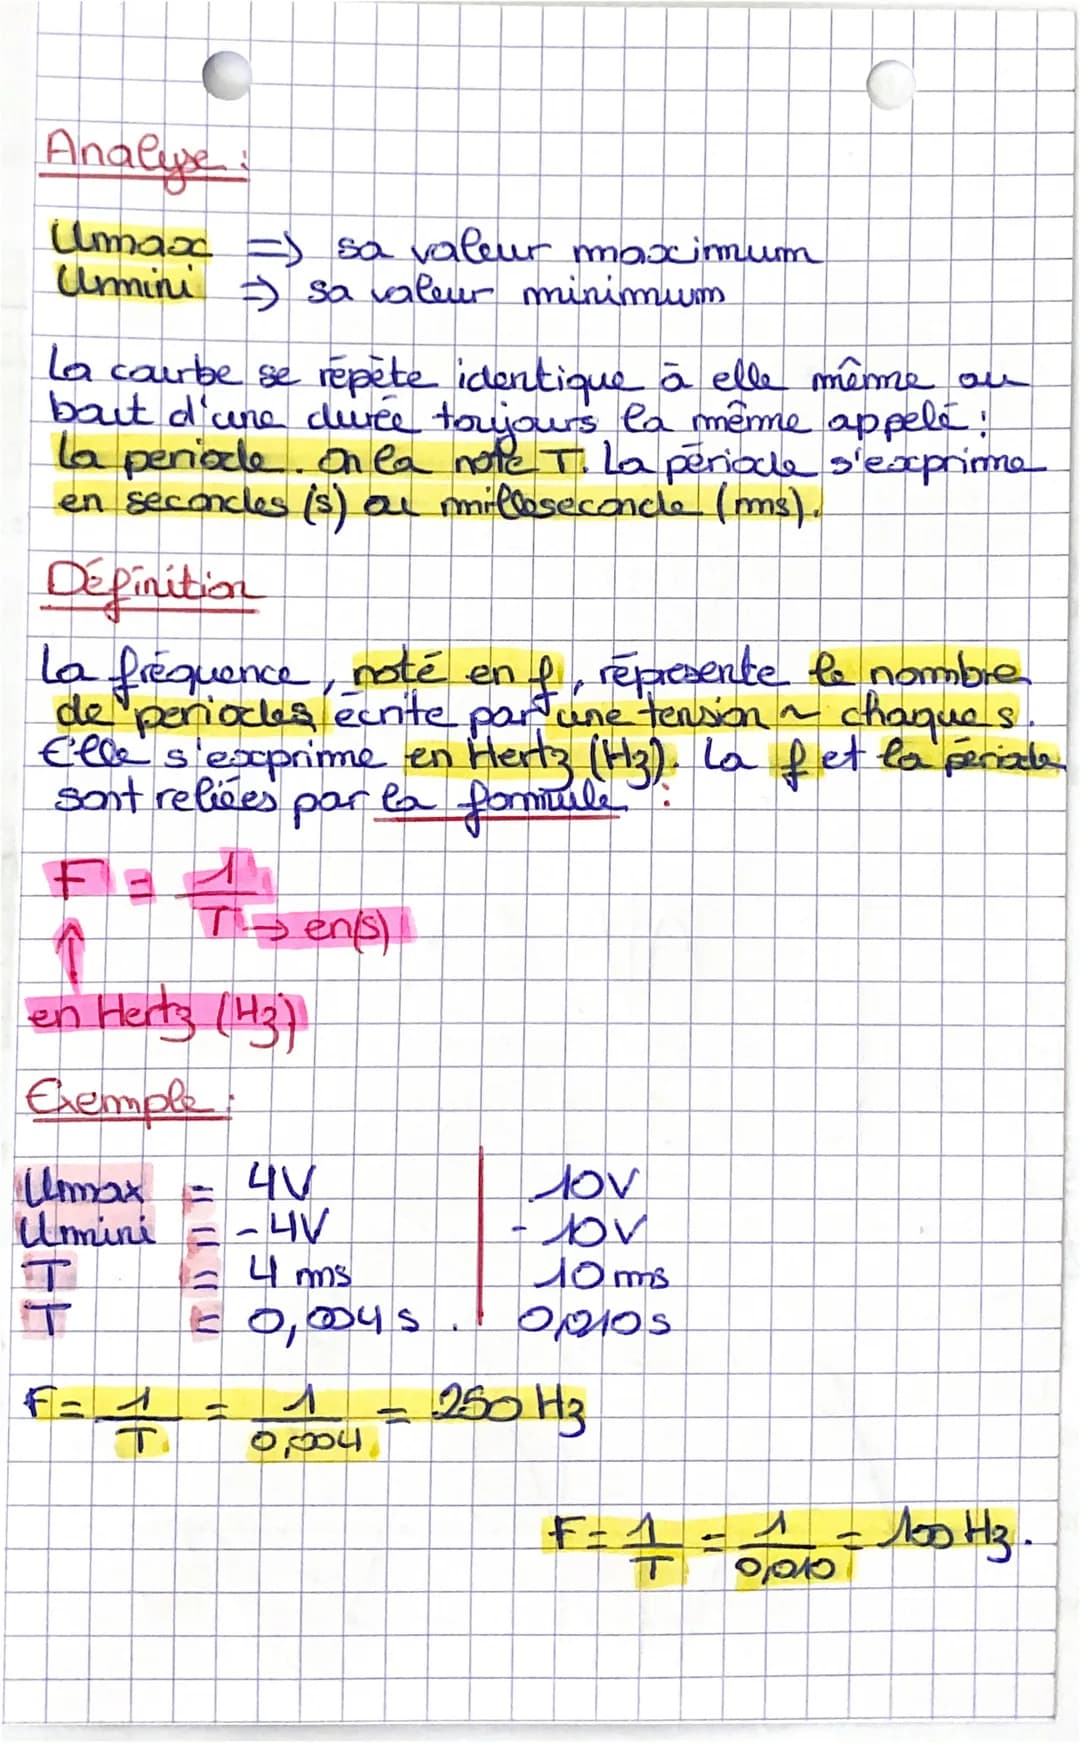 Analyse :
Umax => sa valeur maximum
Umini => sa valeur minimum
La courbe se répète identique à elle même au
bout d'une durée toujours la même appelé :
la periode. On la note T. La période s'exprime
en secondes (s) ou milloseconde (ms).
Définition
La fréquence, noté en f, répresente le nombre
de periodes écrite par une tension ~ chaque s.
Elle s'exprime en Hertz (Hz). La f et la période
sont reliées par la formule :
F = 1/T → en(s)
↑
en Hertz (Hz)
Exemple :
Umax = 4V | 10V
Umini = -4V | -10V
T = 4 ms | 10 ms
T = 0,004 s. | 0,010 s
F = 1/T = 1/0,004 = 250 Hz
F = 1/T = 1/0,010 = 100 Hz.